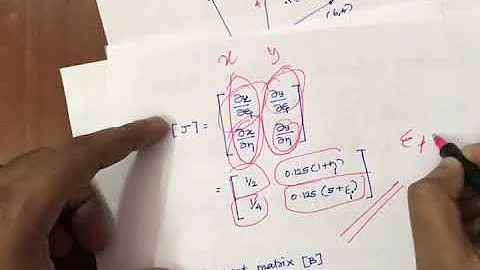 x y
[J] = [ ∂x/∂ξ ∂y/∂ξ
∂x/∂η ∂y/∂η ]
= [ 1/2 0.125(1+η)
1/4 0.125(5+ξ) ]
matrix [B]